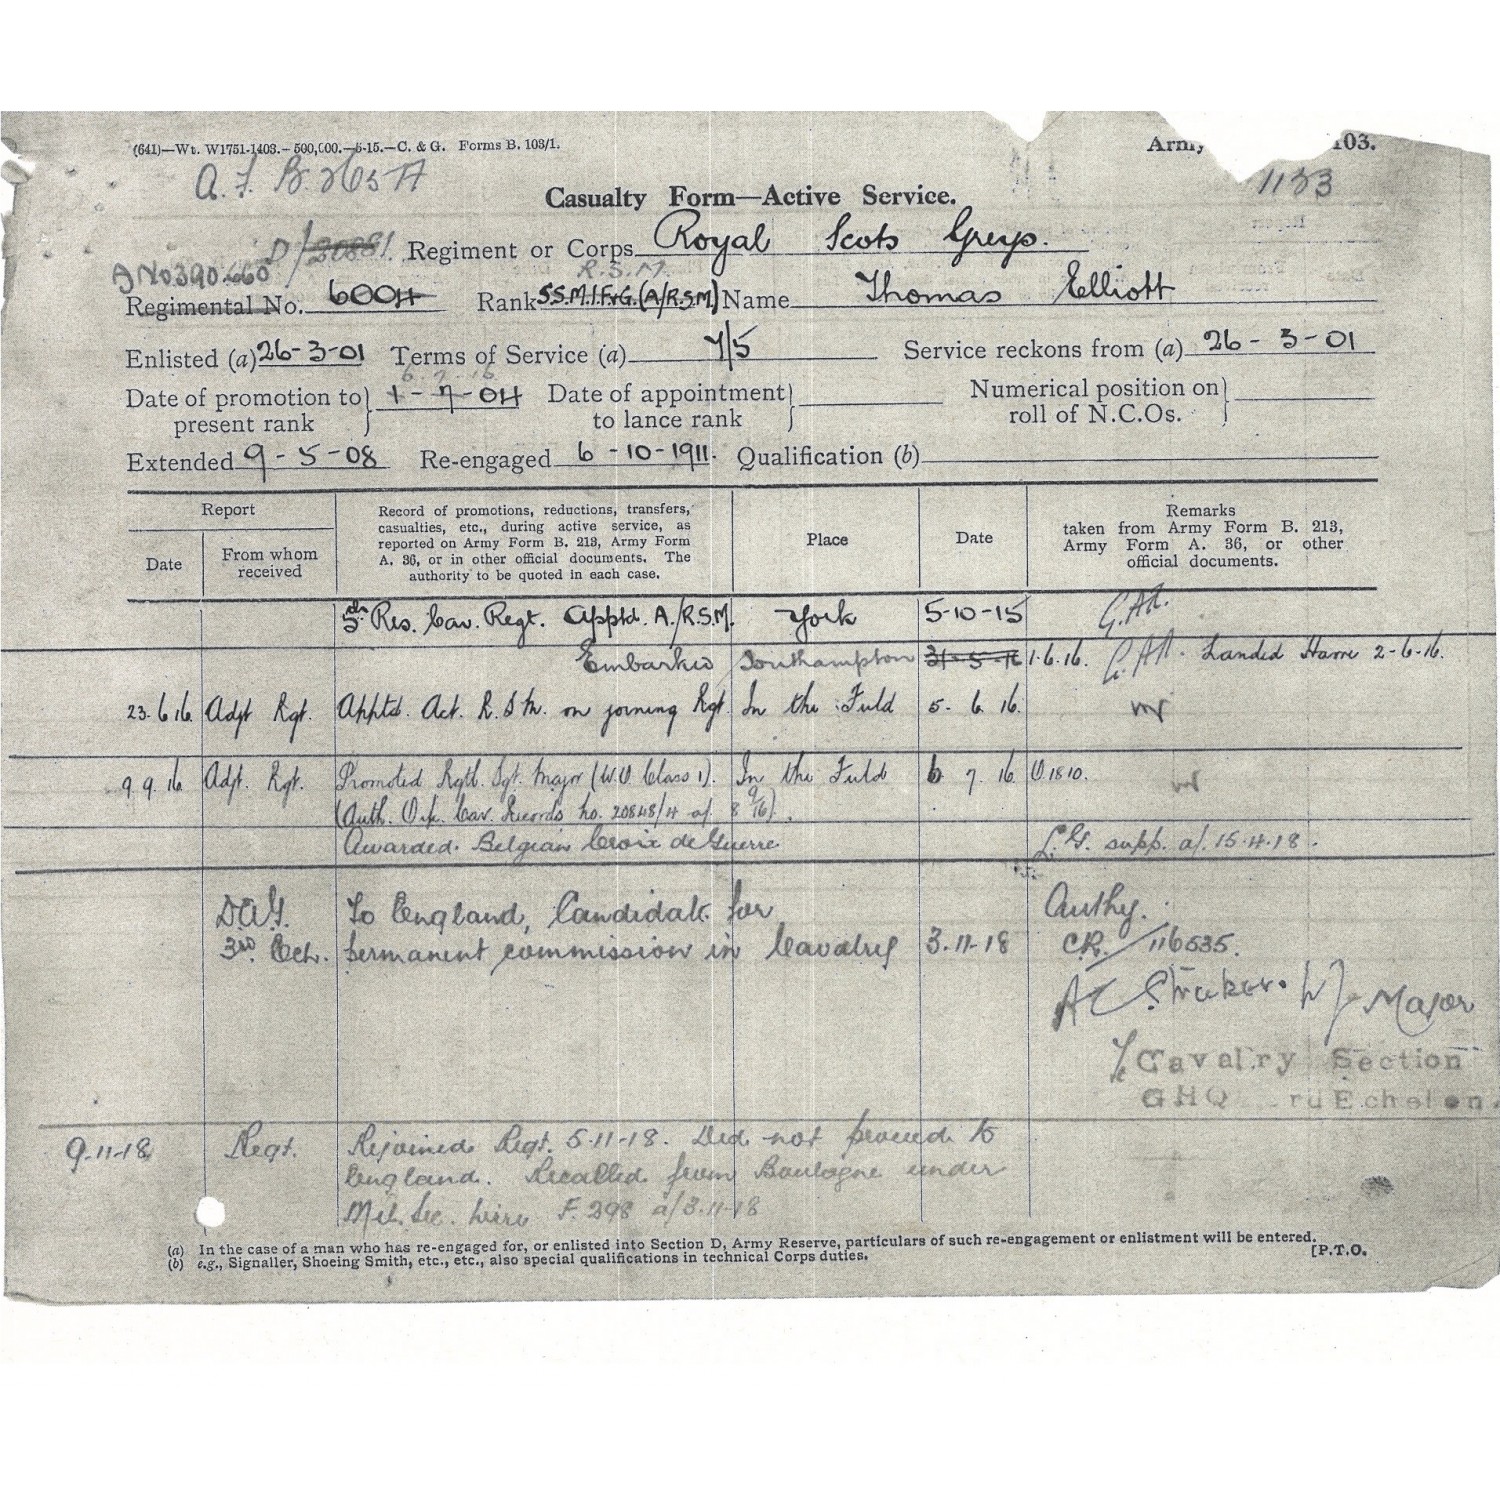 (641)—Wt. W1751-1403.—500,000.—5-15.—C. & G. Forms B. 103/1.
Army 103.
A. F. B. 1133
Casualty Form—Active Service.
D/20881 Regiment or Corps Royal Scots Greys.
A No 390.660 R.S.M.
Regimental No. 6004 Rank S.S.M.I.F&G.(A/R.S.M) Name Thomas Elliott
Enlisted (a) 26-3-01 Terms of Service (a) 7/5 Service reckons from (a) 26-3-01
6.7.16
Date of promotion to present rank 1-7-04 Date of appointment to lance rank Numerical position on roll of N.C.Os.
Extended 9-5-08 Re-engaged 6-10-1911. Qualification (b)
Report
Date
From whom received
Record of promotions, reductions, transfers,
casualties, etc., during active service, as
reported on Army Form B. 213, Army Form
A. 36, or in other official documents. The
authority to be quoted in each case.
Place
Date
Remarks
taken from Army Form B. 213,
Army Form A. 36, or other
official documents.
5th Res. Cav. Regt. Apptd. A./R.S.M. York 5-10-15
Embarked Southampton 31-5-16 1.6.16. Landed Havre 2-6-16.
23.6.16. Adjt Rgt. Apptd. Act. R.S.M. on joining Rgt In the Field 5. 6. 16.
9.9.16 Adjt. Rgt. Promoted Rgtl. Sgt. Major (W.O Class 1). In the Field 6 7 16. O.1810.
(Auth. O i/c Cav. Records No. 20848/4 of 8 9/16).
Awarded Belgian Croix de Guerre L.G. supp. d/. 15.4.18.
D.A.G. To England, Candidate for Authy.
3rd Ech. permanent commission in Cavalry 3.11-18 CR/116535.
Major
Cavalry Section
GHQ rd Echelon.
9-11-18 Regt. Rejoined Regt. 5-11-18. Did not proceed to
England. Recalled from Boulogne under
Mil. Sec. wire F.298 d/3-11-18
(a) In the case of a man who has re-engaged for, or enlisted into Section D, Army Reserve, particulars of such re-engagement or enlistment will be entered.
(b) e.g., Signaller, Shoeing Smith, etc., etc., also special qualifications in technical Corps duties.
[P.T.O.